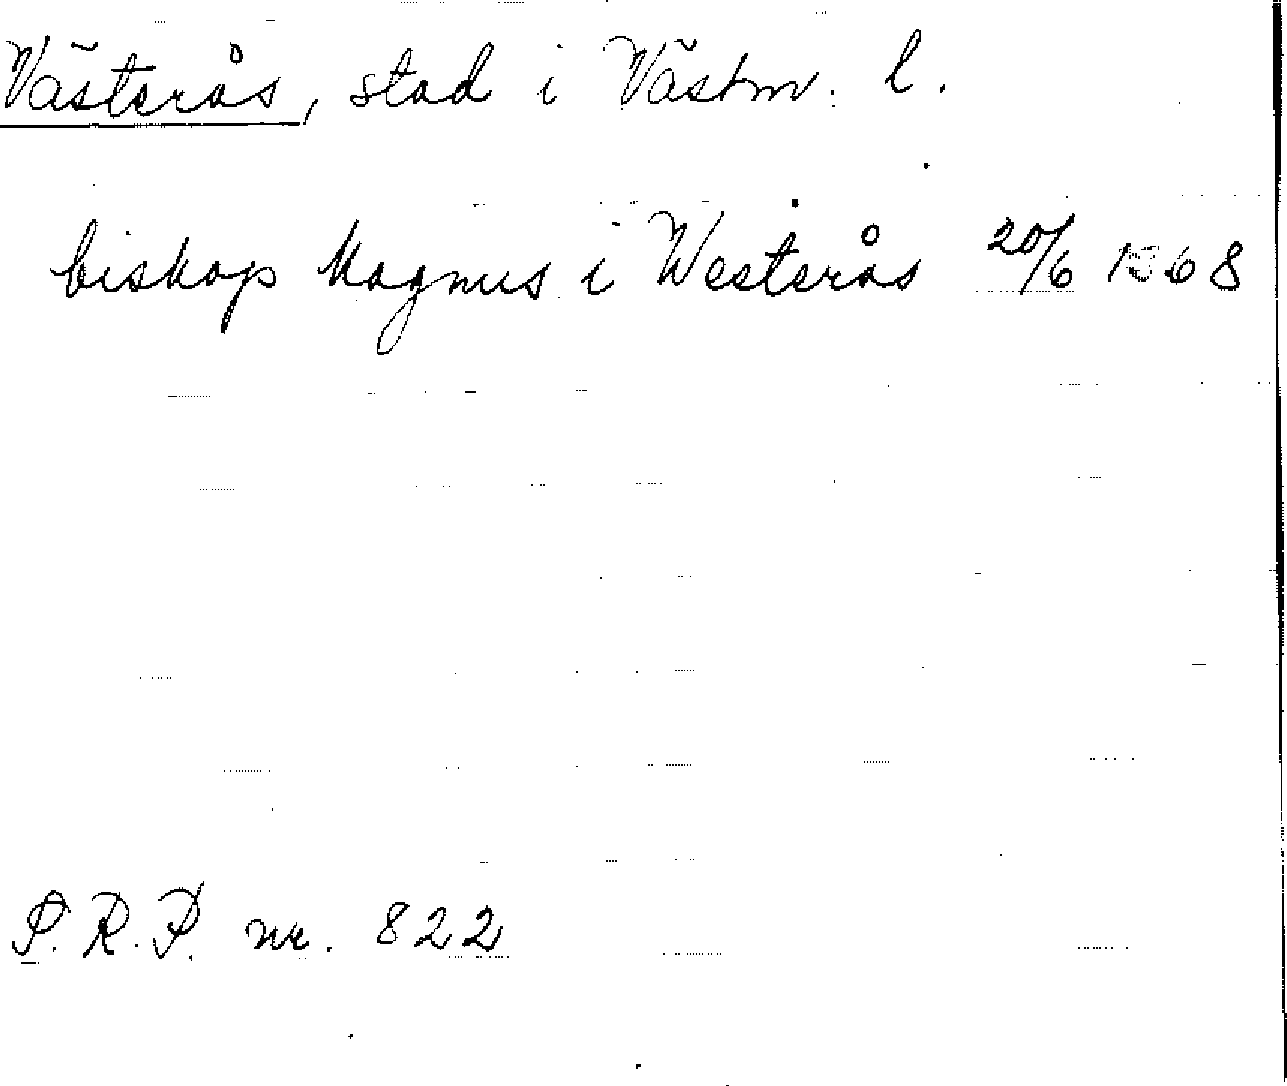 Västerås, stad i Västm. l.
biskop Magnus i Westerås 20/6 1368
S.R.P. nr. 822